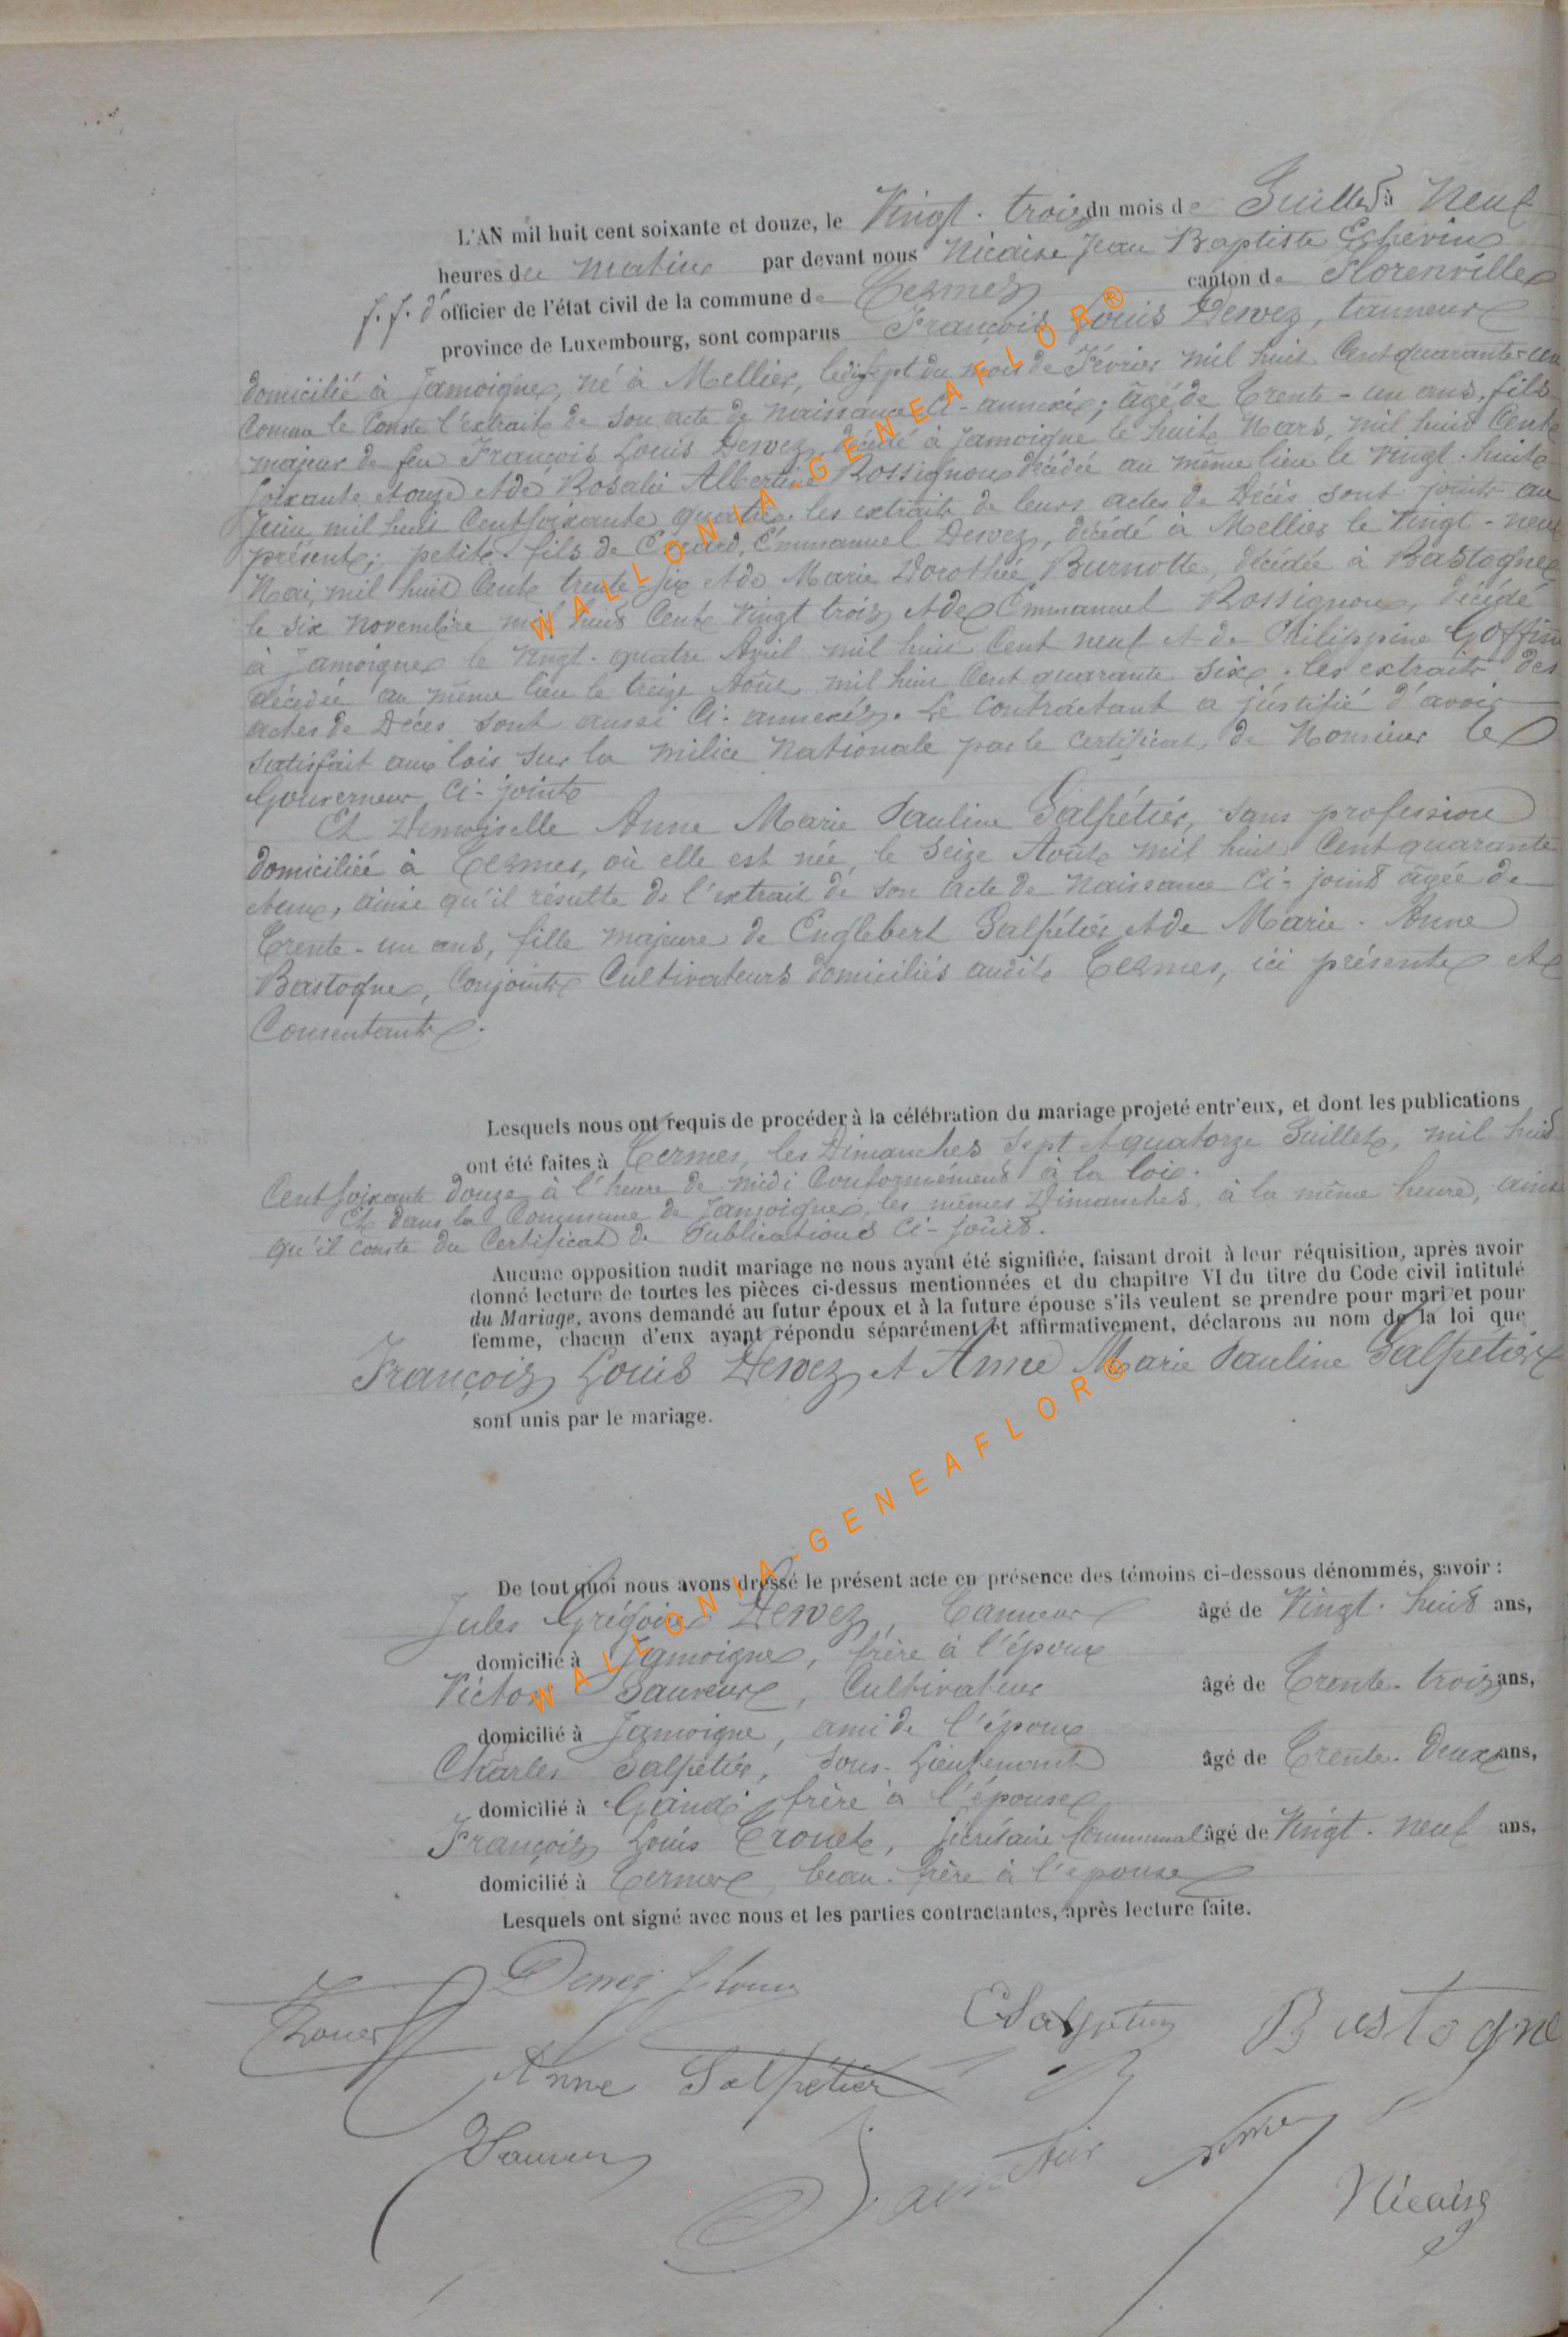 L'AN mil huit cent soixante et douze, le Vingt-trois du mois de Juillet à Neuf
heures du matin par devant nous Nicaise Jean Baptiste Echevin
f. f. d'officier de l'état civil de la commune de Termes canton de Florenville
province de Luxembourg, sont comparus François Louis Dewez, tanneur
domicilié à Jamoigne, né à Mellier, le dix-sept du mois de Février mil huit Cent quarante-un
Comme le Conste l'extrait de son acte de naissance Ci-annexé; âgé de Trente-un ans, fils
majeur de feu François Louis Dewez, décédé à Jamoigne le huit Mars, mil huit Cent
soixante et onze et de Rosalie Albertine Rossignon décédée au même lieu le Vingt-huit
Juin mil huit Cent soixante quatre. les extraits de leurs actes de Décès sont joints au
présent; petit-fils de Emmanuel Dewez, décédé à Mellier le Vingt-neuf
Mai, mil huit Cent trente-six et de Marie Dorothée Burnotte, décédée à Bastogne
le six novembre mil huit Cent Vingt trois et de Emmanuel Rossignon, décédé
à Jamoigne le Vingt-quatre Avril mil huit Cent neuf et de Philippine Goffin
décédée au même lieu le treize Août mil huit Cent quarante six. les extraits des
actes de Décès sont aussi Ci-annexés. Le Contractant a justifié d'avoir
satisfait aux lois sur la milice Nationale par le Certificat de Monsieur le
Gouverneur Ci-joint
Et Demoiselle Anne Marie Pauline Salpétier, sans profession
domiciliée à Termes, où elle est née, le Seize Août mil huit Cent quarante
et un, ainsi qu'il résulte de l'extrait de son acte de Naissance Ci-joint âgée de
Trente-un ans, fille majeure de Englebert Salpétier et de Marie-Anne
Bastogne, Conjoints Cultivateurs domiciliés audit Termes, ici présents et
Consentants.
Lesquels nous ont requis de procéder à la célébration du mariage projeté entr'eux, et dont les publications
ont été faites à Termes, les Dimanches Sept et quatorze Juillet, mil huit
Cent soixante douze à l'heure de midi Conformément à la loi.
Et dans la Commune de Jamoigne, les mêmes Dimanches, à la même heure, ainsi
qu'il conste du Certificat de Publications Ci-joint.
Aucune opposition audit mariage ne nous ayant été signifiée, faisant droit à leur réquisition, après avoir
donné lecture de toutes les pièces ci-dessus mentionnées et du chapitre VI du titre du Code civil intitulé
du Mariage, avons demandé au futur époux et à la future épouse s'ils veulent se prendre pour mari et pour
femme, chacun d'eux ayant répondu séparément et affirmativement, déclarons au nom de la loi que
François Louis Dewez et Anne Marie Pauline Salpétier
sont unis par le mariage.
De tout quoi nous avons dressé le présent acte en présence des témoins ci-dessous dénommés, savoir :
Jules Grégoire Dewez, Tanneur âgé de Vingt-huit ans,
domicilié à Jamoigne, frère à l'époux
Victor Sauveur, Cultivateur âgé de Trente-trois ans,
domicilié à Jamoigne, ami de l'époux
Charles Salpétier, Sous-Lieutenant âgé de Trente-Deux ans,
domicilié à Gand, frère à l'épouse
François Louis Trouet, Secrétaire Communal âgé de Vingt-neuf ans,
domicilié à Termes, beau-frère à l'épouse
Lesquels ont signé avec nous et les parties contractantes, après lecture faite.
Dewez f Louis
Trouet
CSalpétier Bastogne
Anne Salpétier
Nicaise
WALLONIA-GENEAFLOR®
WALLONIA-GENEAFLOR®